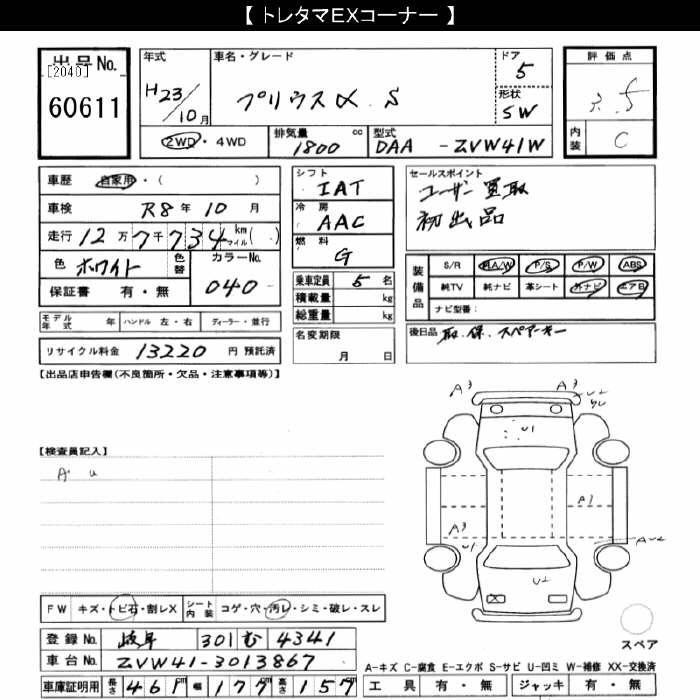 【 トレタマEXコーナー 】
出品No.
[2040]
60611
年式
H23/10月
車名・グレード
プリウスα S
ドア
5
形状
SW
評価点
3.5
内装
C
2WD・4WD
排気量
1800 cc
型式
DAA - ZVW41W
車歴 自家用・( )
車検 R8年 10月
走行 12万7千734 km マイル( )
色 ホワイト 色替
カラーNo.
040
保証書 有・無
シフト
IAT
冷房
AAC
燃料
G
乗車定員 5名
積載量 kg
総重量 kg
セールスポイント
ユーザー買取
初出品
装備品
S/R 純A/W P/S P/W ABS
純TV 純ナビ 革シート 外ナビ エアB
ナビ型番:
モデル年式 年 ハンドル 左・右 ディーラー・並行
名変期限
月 日
後日品 取.保.スペアキー
リサイクル料金 13220 円 預託済
【出品店申告欄(不良箇所・欠品・注意事項等)】
A3
A3
U2
U1
【検査員記入】
A U
A1
A3
U1
AU2
U2
X
FW キズ・トビ石・割レX シート内装 コゲ・穴・汚レ・シミ・破レ・スレ
登録No. 岐阜 301 む 4341
車台No. ZVW41-3013867
車庫証明用 長さ 461cm 幅 177cm 高さ 157cm
スペア
A-キズ C-腐食 E-エクボ S-サビ U-凹ミ W-補修 XX-交換済
工具 有・無 ジャッキ 有・無